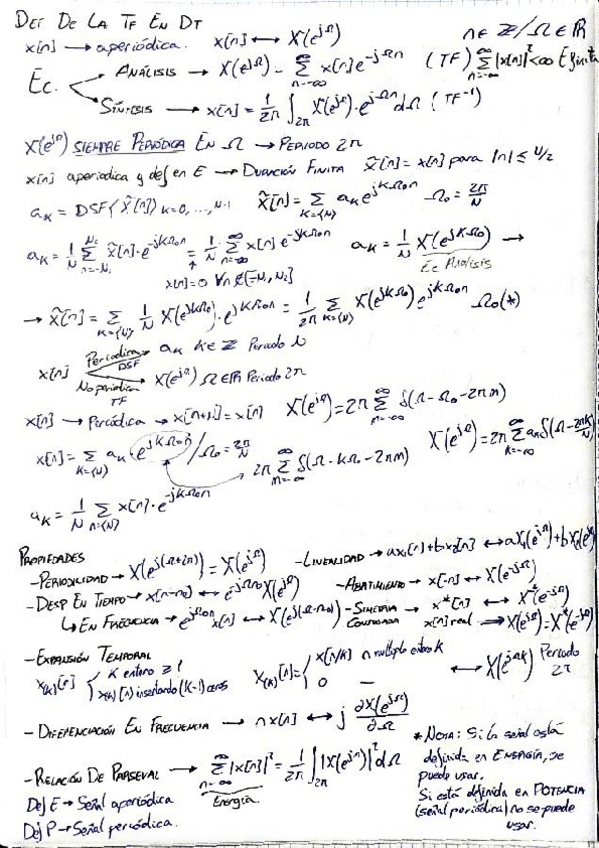 DEF DE LA TF EN DT
x[n] → aperiódica. x[n] ↔ X(e^{jΩ}) n ∈ Z / Ω ∈ R
Ec. ANÁLISIS → X(e^{jΩ}) = Σ_{n=-∞}^{∞} x[n] e^{-jΩn} (TF) Σ_{n=-∞}^{∞} |x[n]|² < ∞ E finita
SÍNTESIS → x[n] = 1/2π ∫_{2π} X(e^{jΩ}) · e^{jΩn} dΩ (TF^{-1})
X(e^{jΩ}) SIEMPRE PERIÓDICA EN Ω → PERIODO 2π
x[n] aperiodica y def en E → DURACIÓN FINITA x̃[n] = x[n] para |n| ≤ N/2
a_K = DSF{x̃[n]} K=0, ..., N-1 x̃[n] = Σ_{K=⟨N⟩} a_K e^{jKΩ₀n} Ω₀ = 2π/N
a_K = 1/N Σ_{n=-N₁}^{N₂} x̃[n] · e^{-jKΩ₀n} = 1/N · Σ_{n=-∞}^{∞} x[n] e^{-jKΩ₀n} a_K = 1/N X(e^{jKΩ₀}) →
x[n]=0 ∀n ∉ [-N₁, N₂] Ec Análisis
→ x̃[n] = Σ_{K=⟨N⟩} 1/N X(e^{jKΩ₀}) · e^{jKΩ₀n} = 1/2π Σ_{K=⟨N⟩} X(e^{jKΩ₀}) e^{jKΩ₀n} Ω₀ (*)
x[n] Periodica DSF → a_K K ∈ Z Periodo N
No periodica TF → X(e^{jΩ}) Ω ∈ R Periodo 2π
x[n] → Periódica → x[n+N] = x[n] X(e^{jΩ}) = 2π Σ_{m=-∞}^{∞} δ(Ω - Ω₀ - 2πm)
x[n] = Σ_{K=⟨N⟩} a_K · e^{jKΩ₀n} / Ω₀ = 2π/N 2π Σ_{m=-∞}^{∞} δ(Ω - KΩ₀ - 2πm) X(e^{jΩ}) = 2π Σ_{K=-∞}^{∞} a_K δ(Ω - 2πK/N)
a_K = 1/N Σ_{n=⟨N⟩} x[n] · e^{-jKΩ₀n}
PROPIEDADES
- PERIODICIDAD → X(e^{j(Ω+2π)}) = X(e^{jΩ}) - LINEALIDAD → ax₁[n] + bx₂[n] ↔ aX₁(e^{jΩ}) + bX₂(e^{jΩ})
- DESP EN TIEMPO → x[n-n₀] ↔ e^{-jΩn₀} X(e^{jΩ}) - ABATIMIENTO → x[-n] ↔ X(e^{-jΩ})
↳ EN FRECUENCIA → e^{jΩ₀n} x[n] ↔ X(e^{j(Ω-Ω₀)}) - SIMETRIA CONJUGADA → x*[n] ↔ X*(e^{-jΩ})
x[n] real → X(e^{jΩ}) = X*(e^{-jΩ})
- EXPANSIÓN TEMPORAL
x_{(K)}[n] { K entero ≥ 1 X_{(K)}[n] = { x[n/K] n multiplo entero K ↔ X(e^{jΩK}) Periodo 2π
x_{(K)}[n] insertando (K-1) ceros 0 —
- DIFERENCIACIÓN EN FRECUENCIA → n x[n] ↔ j ∂X(e^{jΩ})/∂Ω
- RELACIÓN DE PARSEVAL → Σ_{n=-∞}^{∞} |x[n]|² = 1/2π ∫_{2π} |X(e^{jΩ})|² dΩ
Energía
Def E → Señal aperiódica
Def P → Señal periódica.
* NOTA: Si la señal está
definida en ENERGÍA, se
puede usar.
Si está definida en POTENCIA
(señal periódica) no se puede
usar.